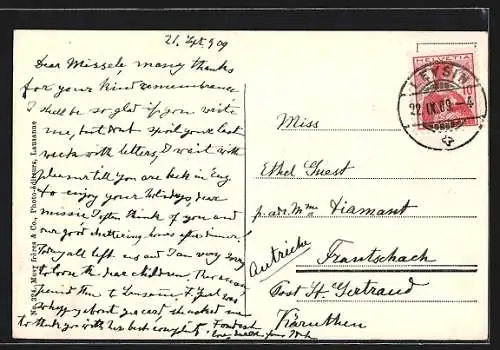 21. Sept 09
Dear Missele, many thanks
for your kind remembrance
I shall be so glad if you write
me, but don't spoil your last
weeks with letters, I wait with
pleasure till you are back in Eng
to enjoy your holidays, dear
missie I often think of you and
our good chattering hours after dinner!
They all left us and I am very sorry
to loose the dear children. Therese
spend then to Lausanne. & Just was
so happy about your card, she asked me
to thank you with her best compts. Fondest
love
No. 324. Mury frères & Co., Photo-Éditeurs, Lausanne
HELVETIA
10
LEYSIN
22.IX.09.–4
Miss
Ethel Guest
p. adr. Mme Diamant
Autriche
Frantschach
Post St. Gertraud
Kärnthen